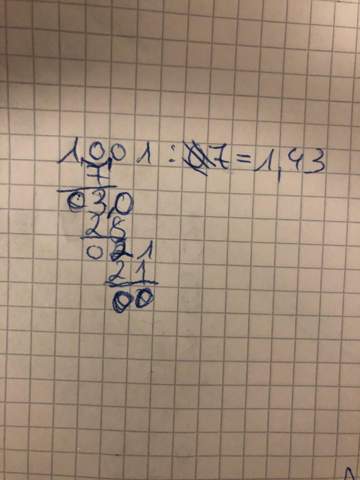 1,001 : 7 = 1,43
7
03,0
28
021
21
00